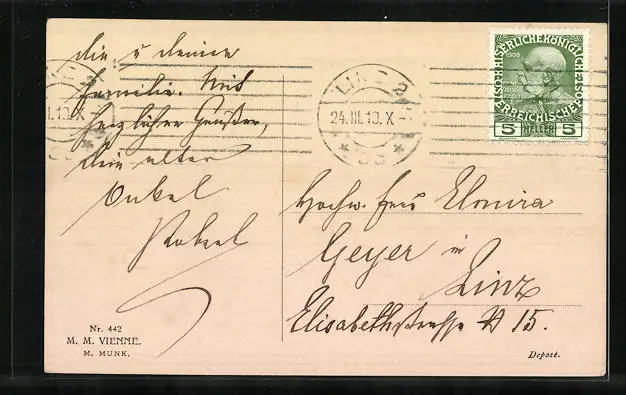 dir u deiner
Familie. Mit
herzlichen Grüßen,
dein alter
Onkel
LINZ 2
24.III.13.X-
K.K. ÖSTERREICHISCHE POST
1908
5 HELLER 5
Hochw. Frau Elmira
Geyer in
Linz
Elisabethstrasse № 15.
Nr. 442
M. M. VIENNE.
M. MUNK.
Deposé.